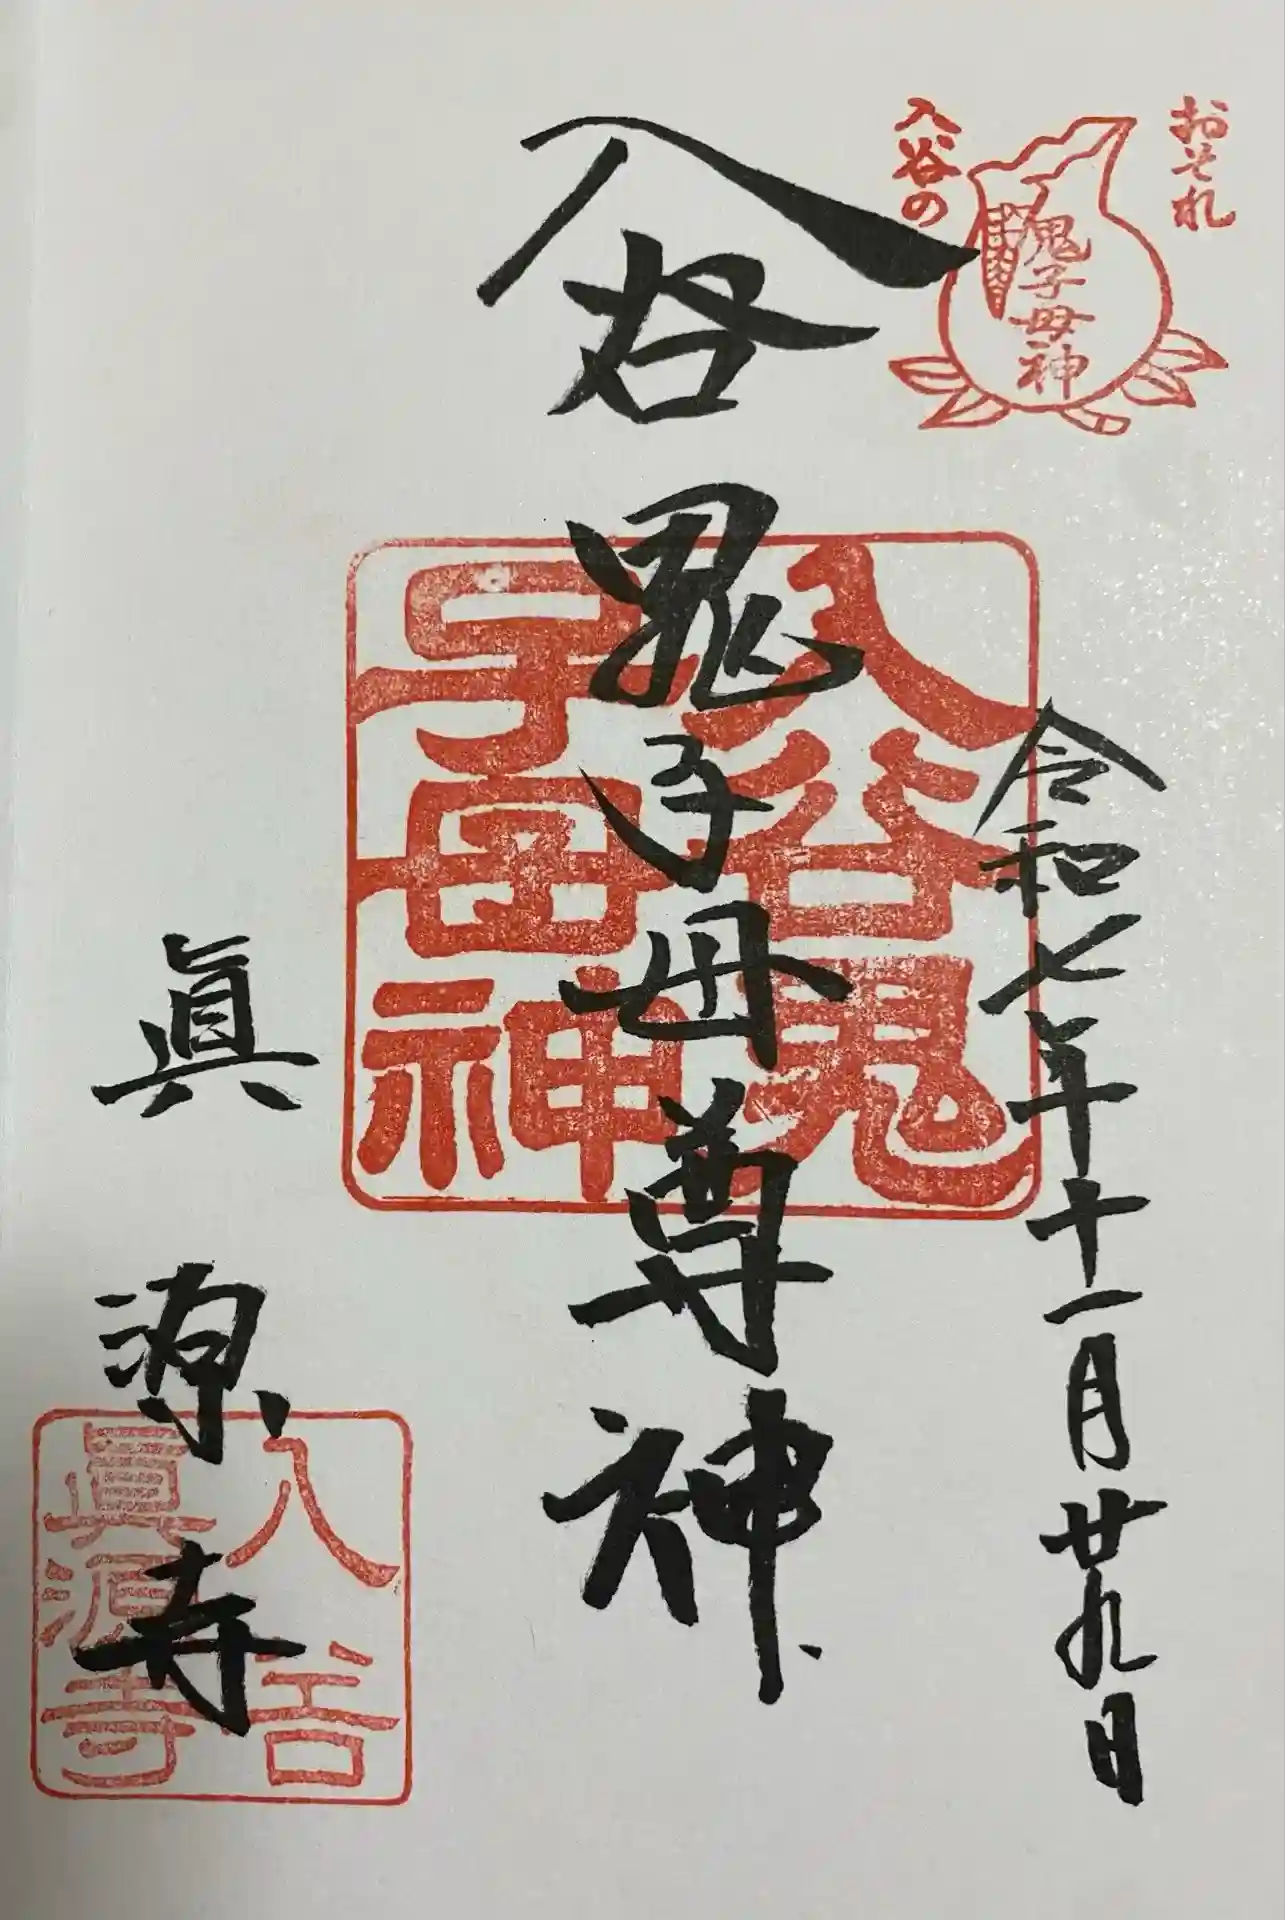 おそれ
入谷の
鬼子母神
令和七年十一月廿九日
入谷鬼子母尊神
入谷鬼
子母神
眞源寺
入谷
眞源寺